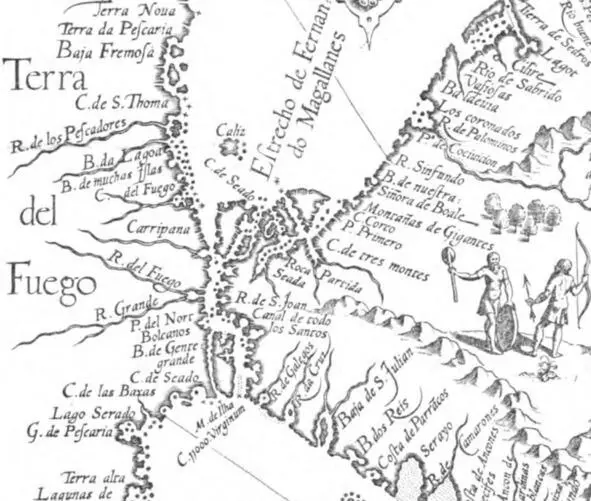 Terra Nova
Terra da Peſcaria
Baja Fremoſa
Terra
C. de S. Thoma
R. de los Peſcadores
B. da Lagoa
B. de muchas Iſlas
C. del Fuego
del
Carripana
R. del Fuego
Fuego
R. Grande
P. del Nort
Bolcanos
B. de Gente
grande
C. de Seado
C. de las Baxas
Lago Serado
G. de Peſcaria
Terra alta
Lagunas de
Caliz
C. de Seado
Eſtrecho de Fernan
do Magallanes
Roca
Seada
Partida
R. de S. Joan
Canal de todo
los Santos
M. de Ilha
C. 11000 Virginum
R. de Galegos
R. da Cruz
Bahia de S. Julian
B. dos Reis
Coſta de Parracos
Serayo
R. de Camarones
Terra de Sedros
Lagot
Cilre
Rio de Sabrido
Vaſioſas
Baldeuia
Los coronados
R. de Palominos
P. de Cocincion
R. Sinfundo
B. de nueſtra
Siñora de Boale
Montañas de Gigantes
C. Corco
P. Primero
C. de tres montes